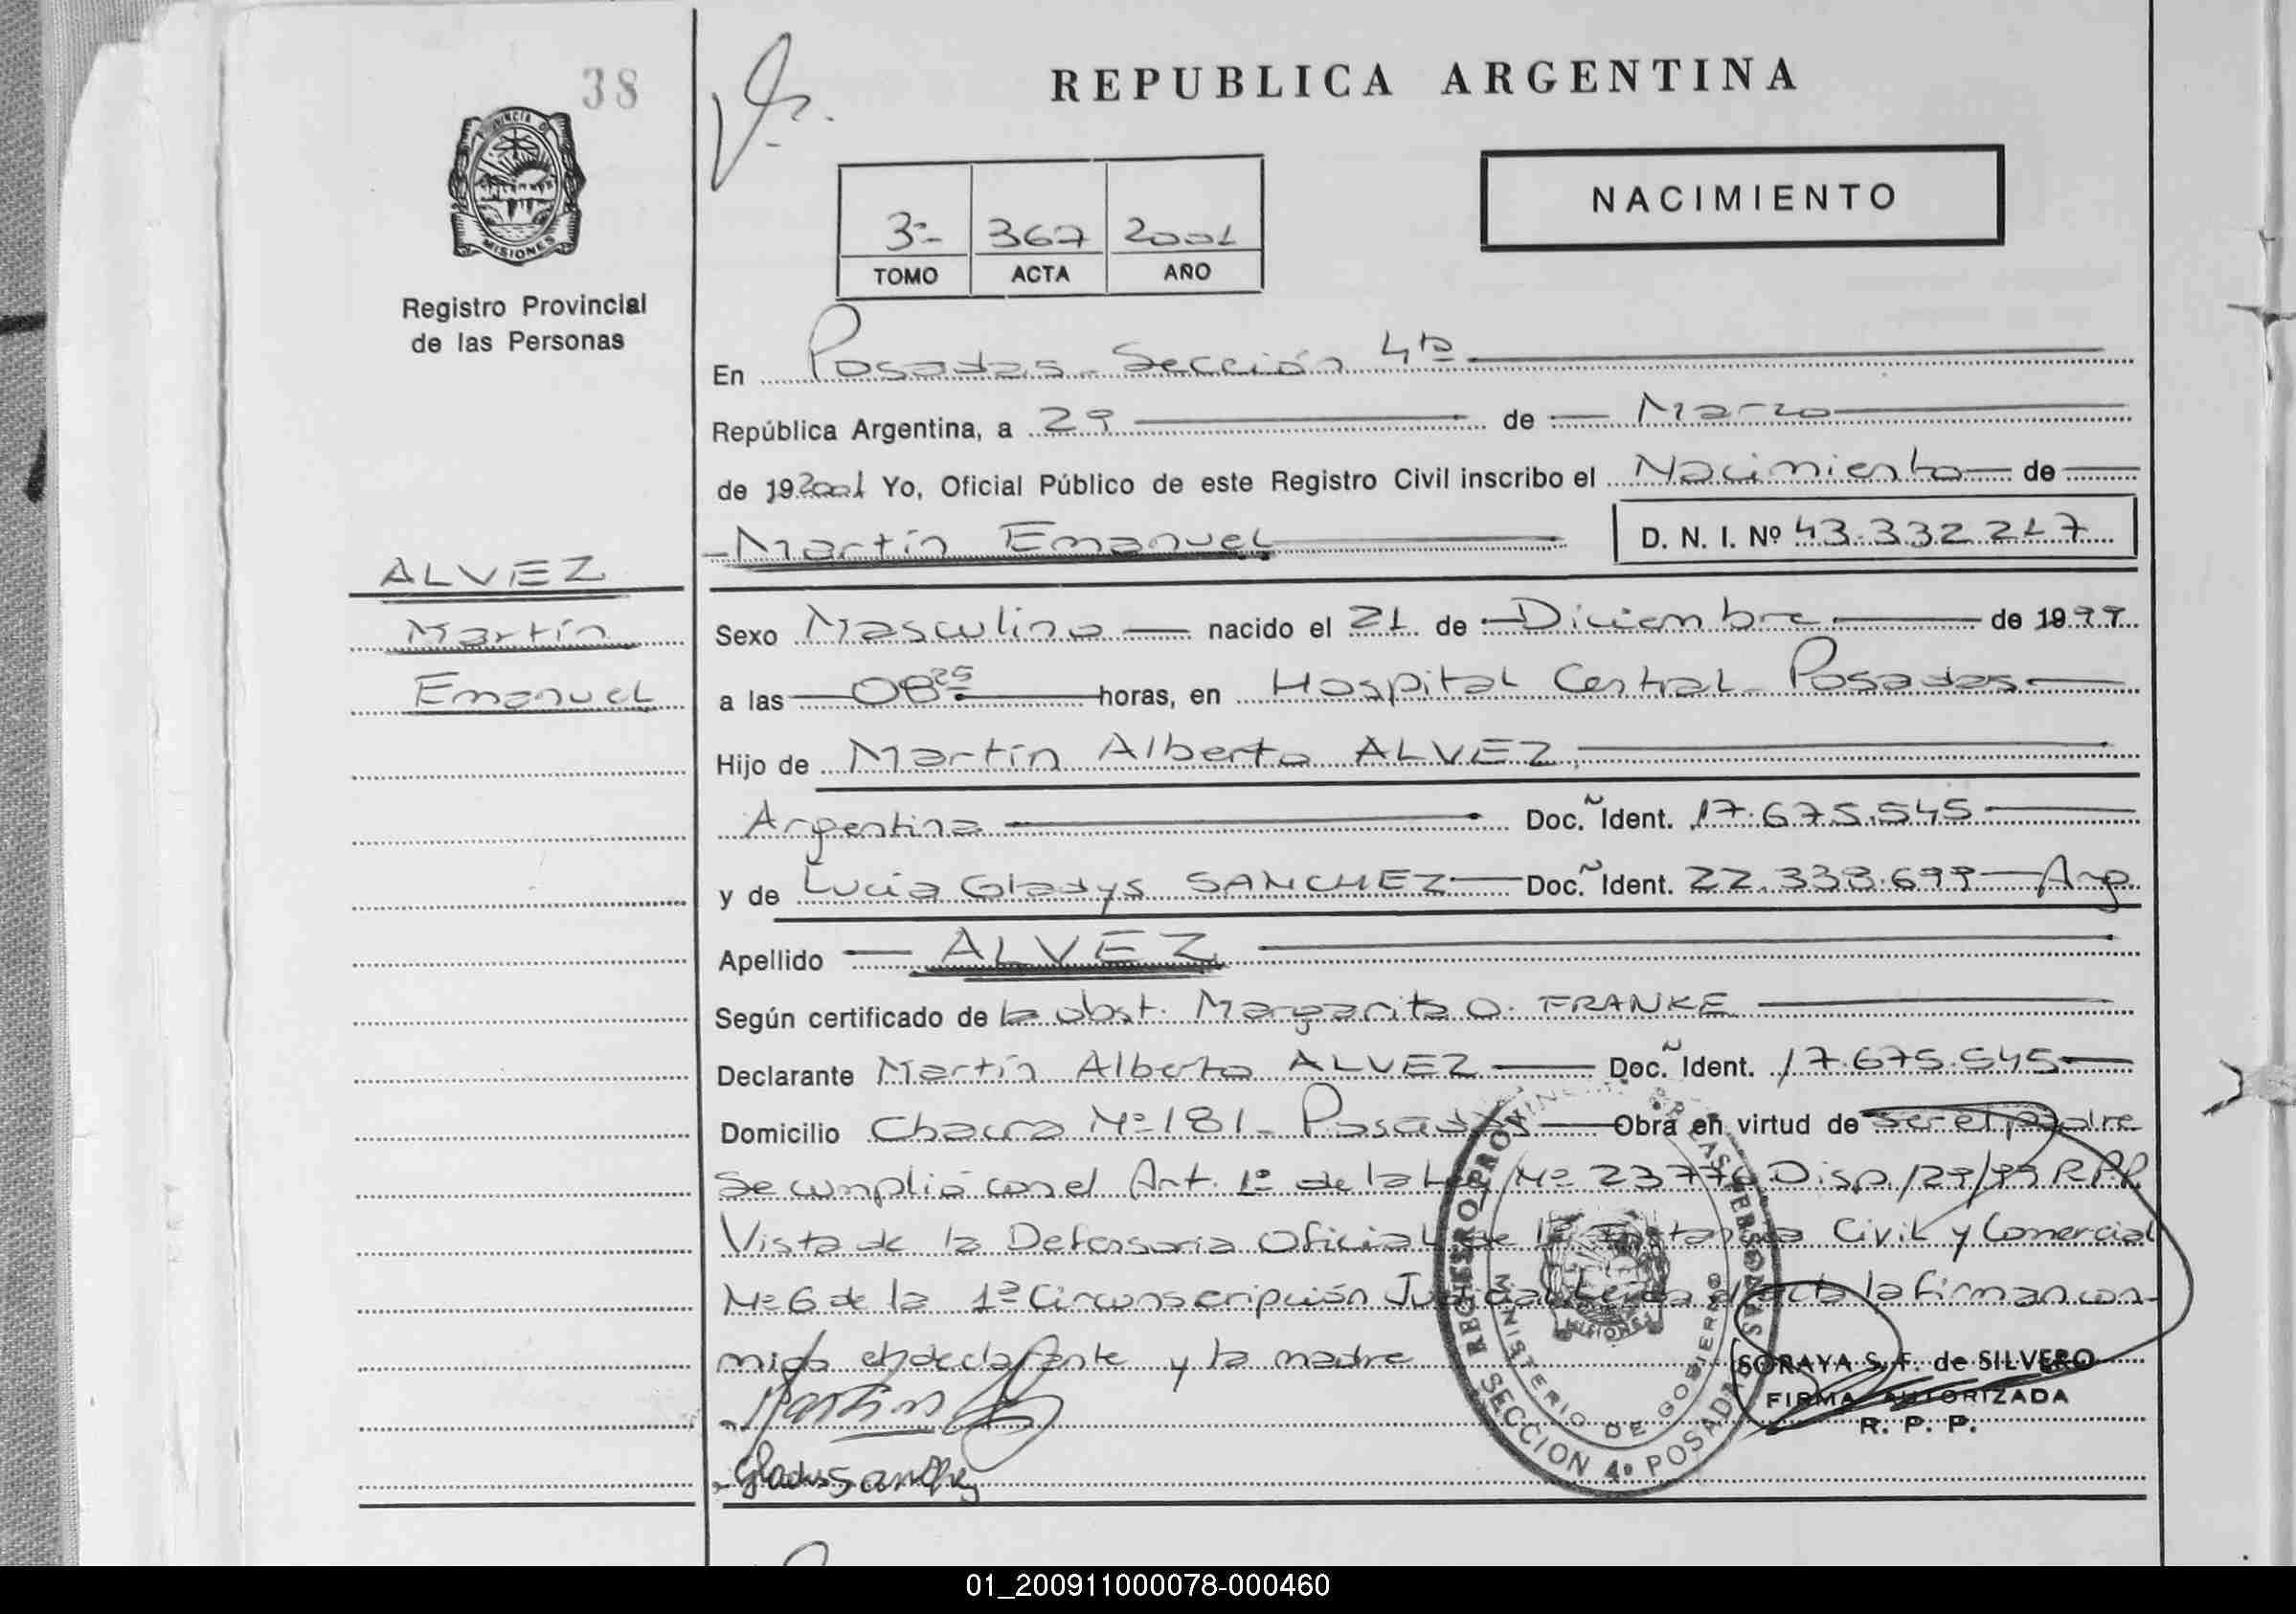 38
REPUBLICA ARGENTINA
PROVINCIA DE MISIONES
NACIMIENTO
3º 367 2001
TOMO ACTA AÑO
Registro Provincial
de las Personas
En Posadas - Sección 4ta
República Argentina, a 29 de Marzo
de 192001 Yo, Oficial Público de este Registro Civil inscribo el Nacimiento de
Martín Emanuel D. N. I. Nº 43.332.217
ALVEZ
Martín
Emanuel
Sexo Masculino nacido el 21 de Diciembre de 1999
a las 08 25 horas, en Hospital Central - Posadas
Hijo de Martín Alberto ALVEZ,
Argentina Doc. Ñ Ident. 17.675.545
y de Lucia Gladys SANCHEZ Doc. Ñ Ident. 22.333.699 Arg
Apellido ALVEZ
Según certificado de la obst. Margarita O. FRANKE
Declarante Martín Alberto ALVEZ Doc. Ñ Ident. 17.675.545
Domicilio Chacra Nº 181 - Posadas Obra en virtud de ser el padre
Se cumplió con el Art. 1º de la Ley Nº 23776 Disp. 129/99 R.P.P.
Vista de la Defensoria Oficial de 1ª Instancia Civil y Comercial
Nº 6 de la 1ª Circunscripción Judicial Leida el acta la firman con-
migo el declarante y la madre
SORAYA S. F. de SILVERO
FIRMA AUTORIZADA
R. P. P.
Martin
Gladys Sanchez
REGISTRO PROVINCIAL DE LAS PERSONAS
MINISTERIO DE GOBIERNO
MISIONES
SECCION 4ª POSADAS
01_200911000078-000460